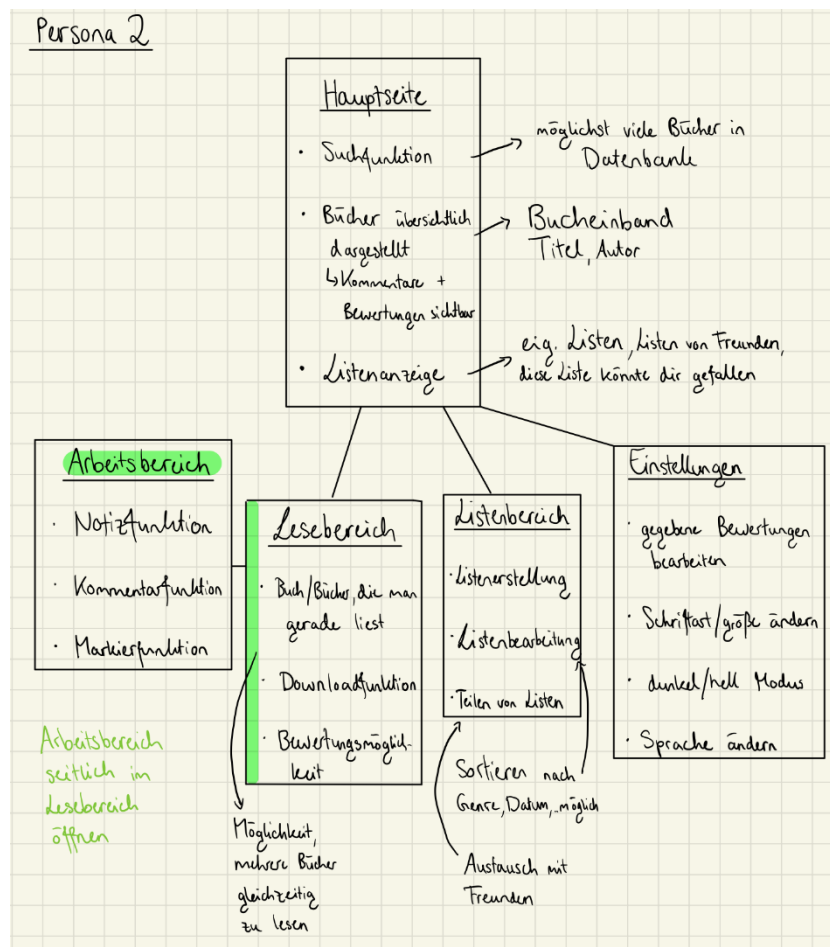 Persona 2
Hauptseite
· Suchfunktion
möglichst viele Bücher in
Datenbank
· Bücher übersichtlich
dargestellt
↳ Kommentare +
Bewertungen sichtbar
Bucheinband
Titel, Autor
· Listenanzeige
eig. Listen, Listen von Freunden,
diese Liste könnte dir gefallen
Arbeitsbereich
· Notizfunktion
· Kommentarfunktion
· Markierfunktion
Arbeitsbereich
seitlich im
Lesebereich
öffnen
Lesebereich
· Buch/Bücher, die man
gerade liest
· Downloadfunktion
· Bewertungsmöglich-
keit
Möglichkeit,
mehrere Bücher
gleichzeitig
zu lesen
Listenbereich
· Listenerstellung
· Listenbearbeitung
· Teilen von Listen
Sortieren nach
Genre, Datum,.. möglich
Austausch mit
Freunden
Einstellungen
· gegebene Bewertungen
bearbeiten
· Schriftart/größe ändern
· dunkel/hell Modus
· Sprache ändern